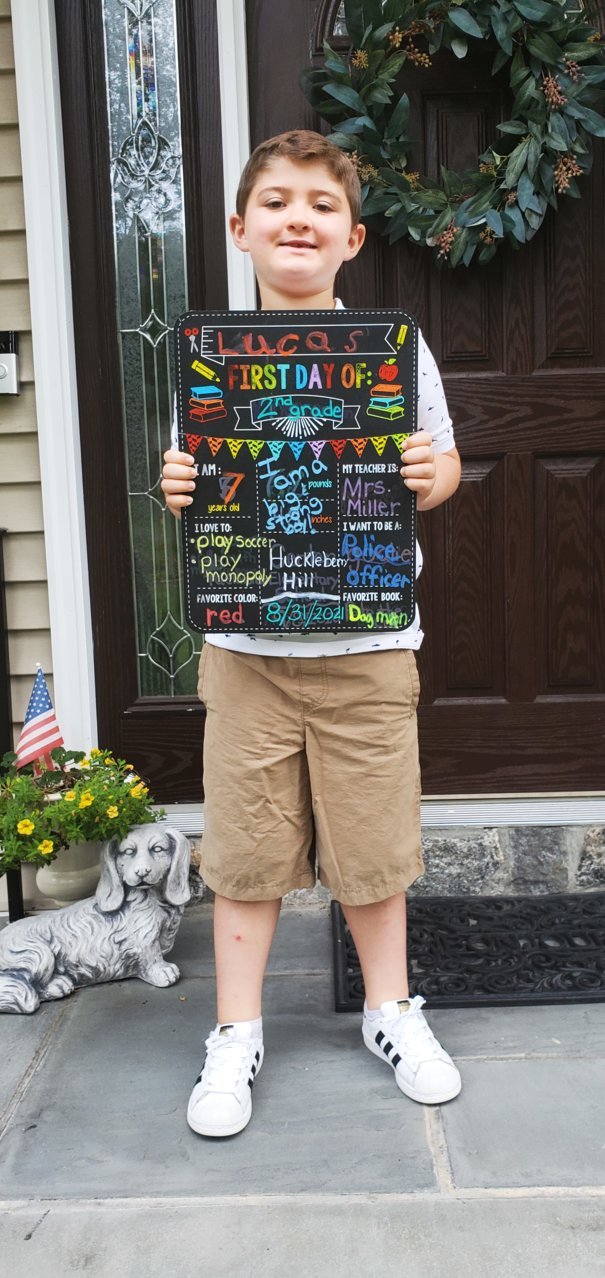 Lucas
FIRST DAY OF:
2nd grade
I AM:
7
years old
I am a
big
strong
boy!
pounds
inches
MY TEACHER IS:
Mrs.
Miller
I LOVE TO:
play soccer
play
monopoly
Huckleberry
Hill
I WANT TO BE A:
Police
officer
FAVORITE COLOR:
red
8/31/2021
FAVORITE BOOK:
Dog man